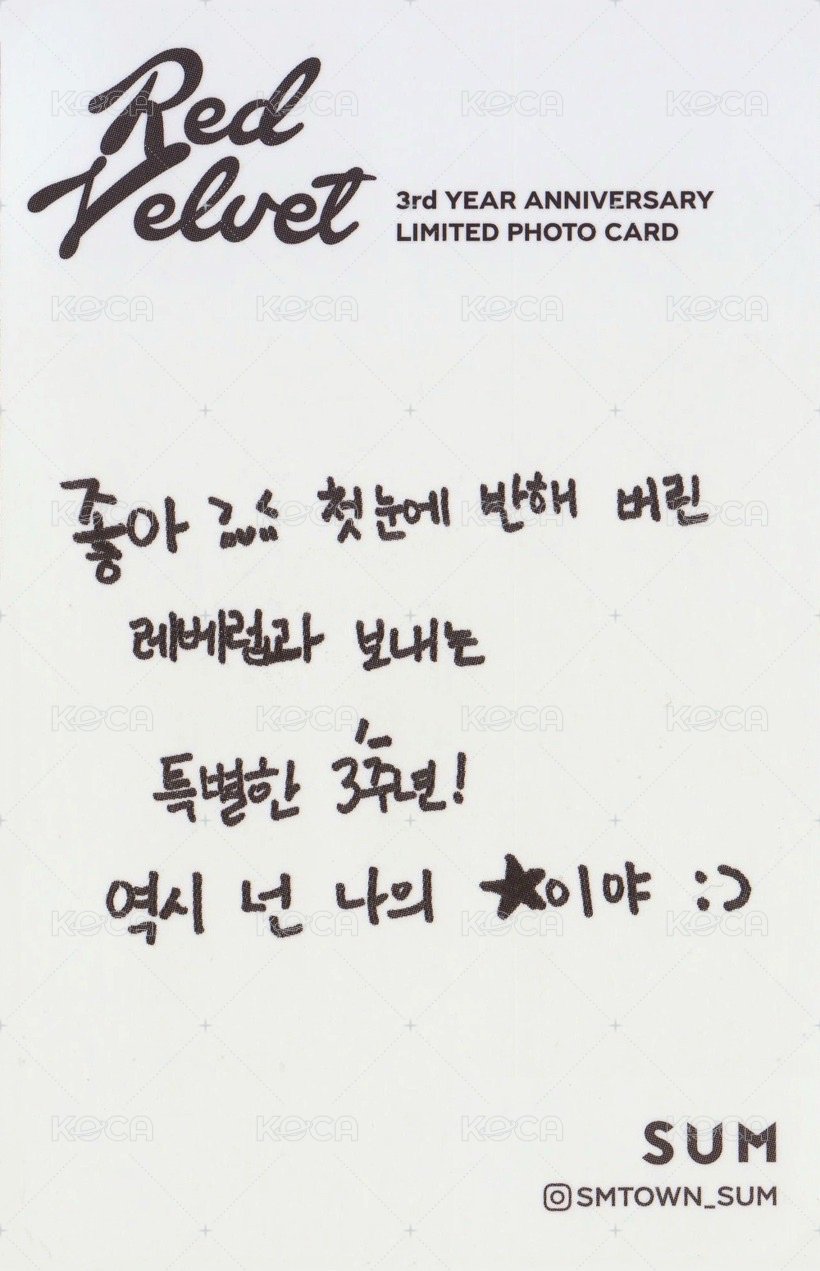 Red
Velvet
3rd YEAR ANNIVERSARY
LIMITED PHOTO CARD
좋아 첫눈에 반해 버린
레베럽과 보내는
특별한 3주년!
역시 넌 나의 ★이야 :)
SUM
SMTOWN_SUM